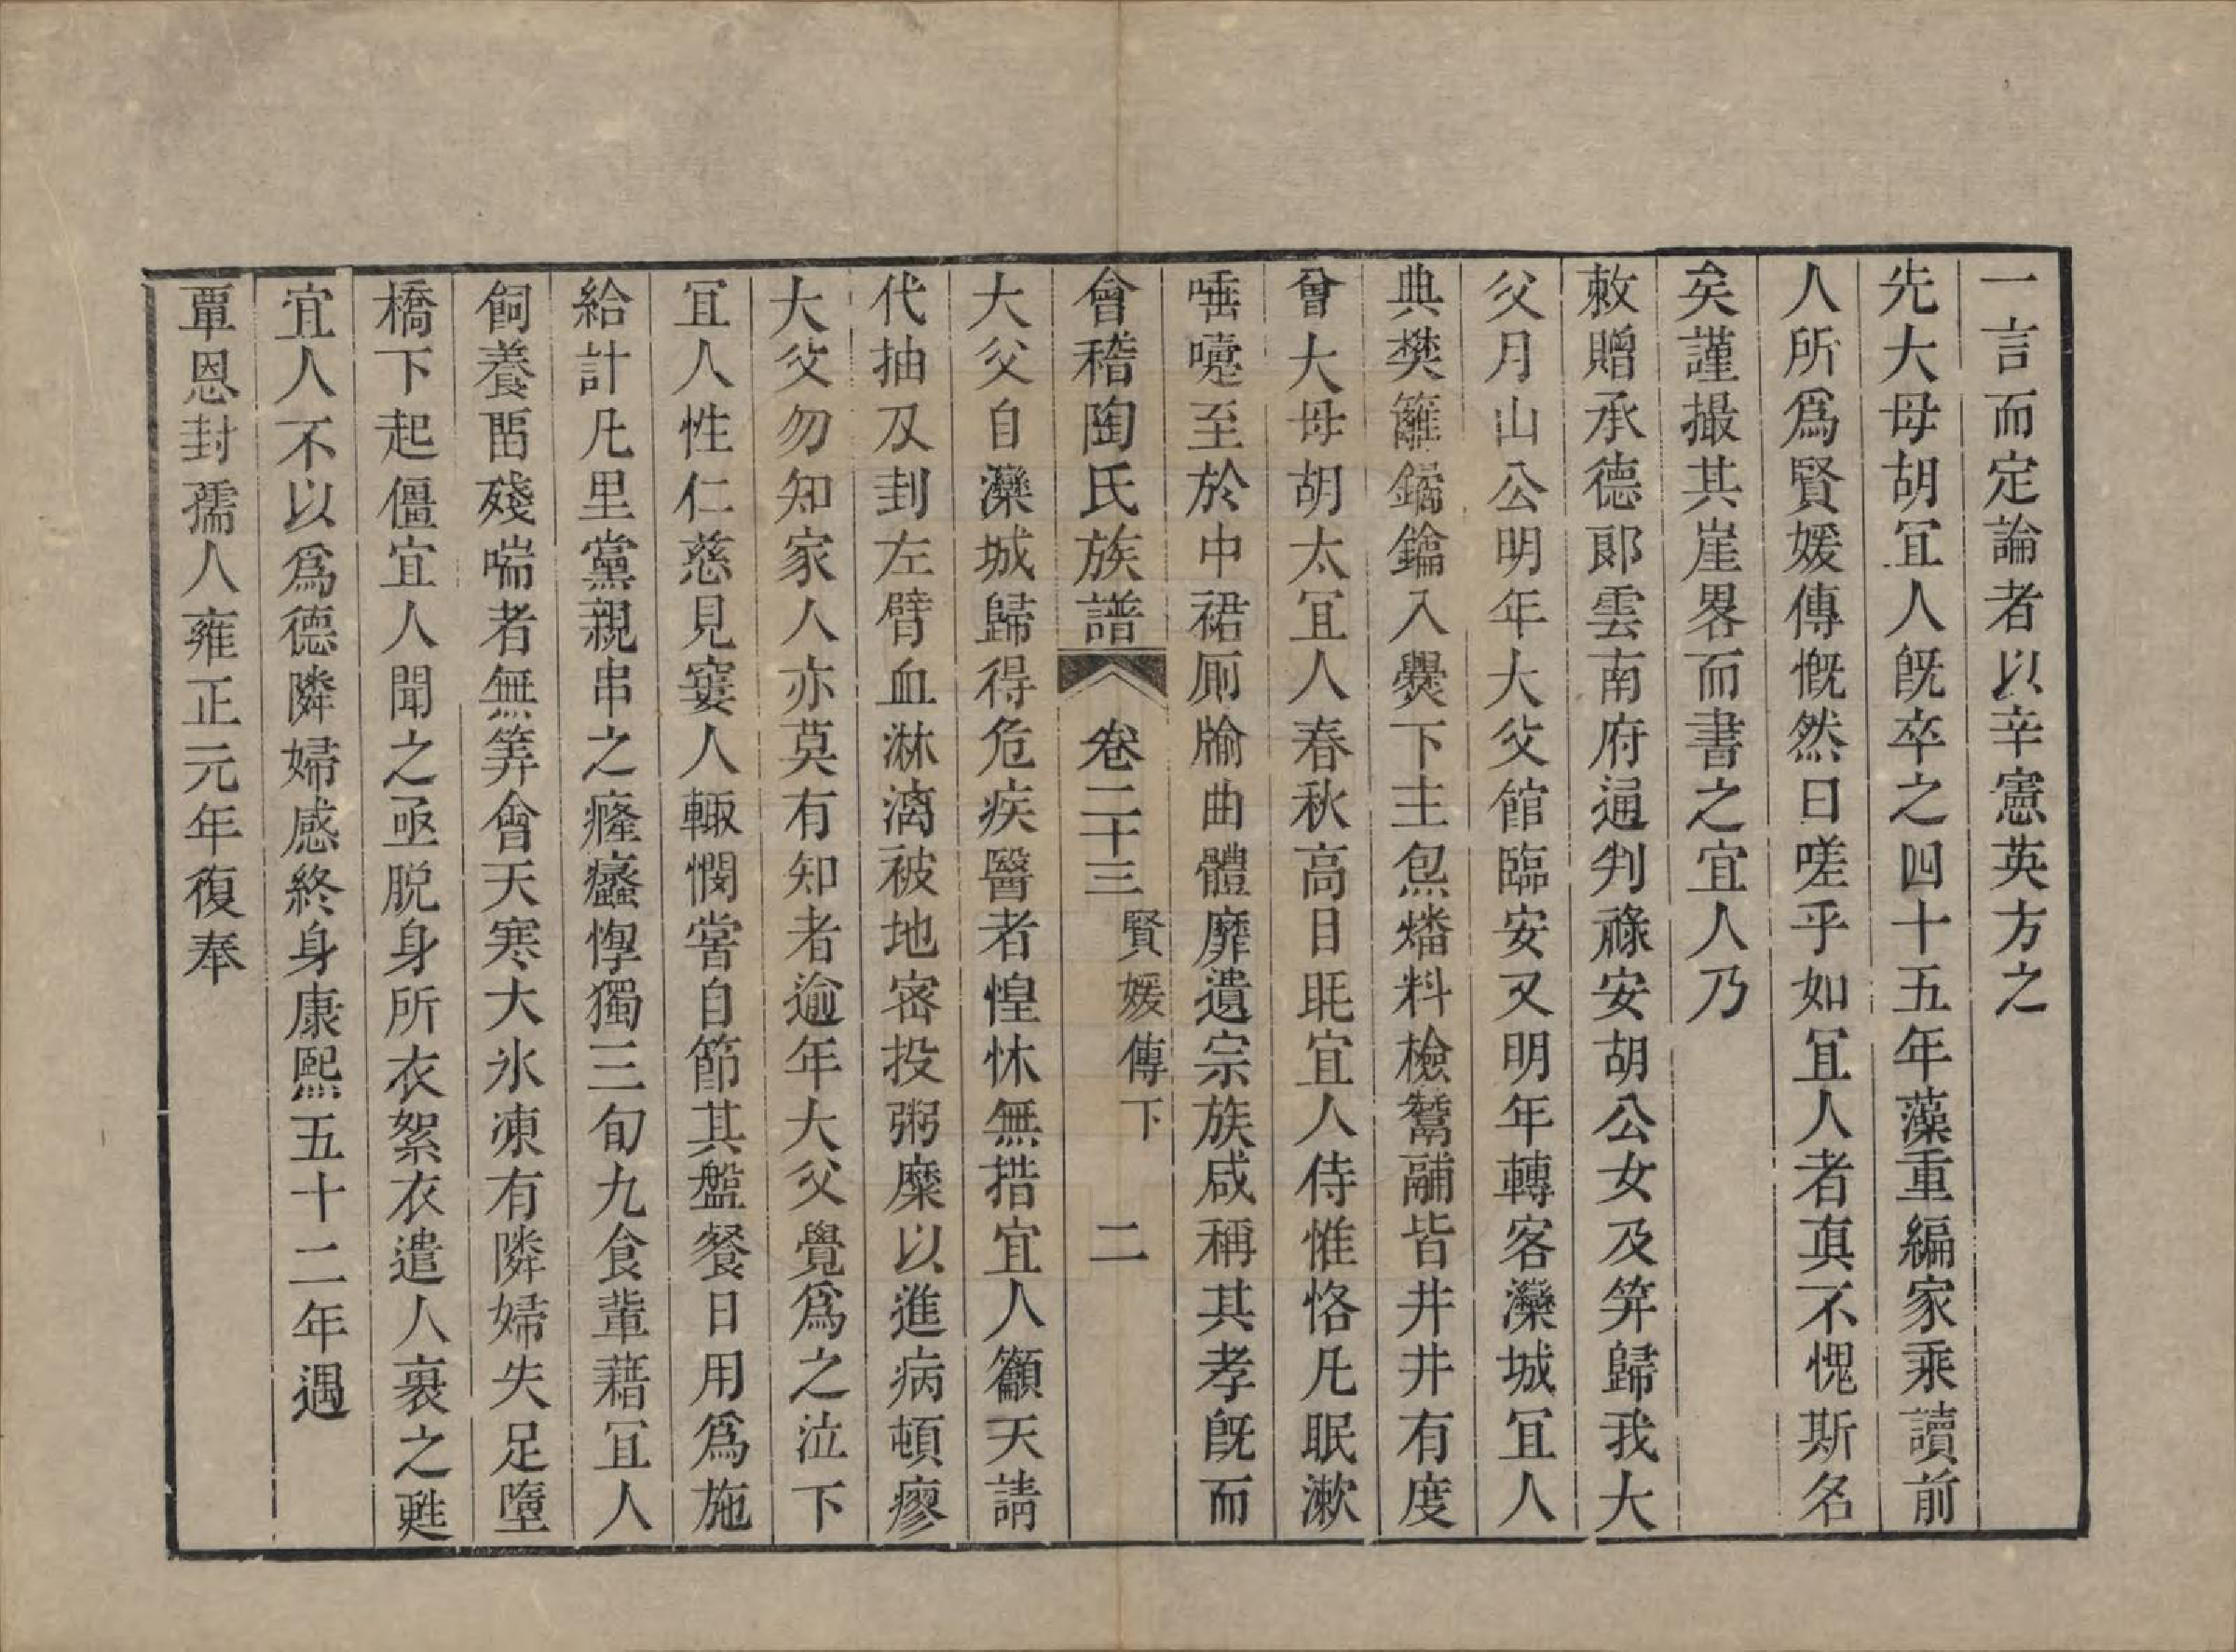 一言而定論者以辛憲英方之
先大母胡宜人既卒之四十五年藻重編家乘讀前
人所爲賢媛傳慨然曰嗟乎如宜人者眞不愧斯名
矣謹撮其崖畧而書之宜人乃
敕贈承德郎雲南府通判祿安胡公女及笄歸我大
父月山公明年大父館臨安又明年轉客灤城宜人
典樊籬鐍鑰入爨下主炰燔料檢鬵鬴皆井井有度
曾大母胡太宜人春秋高目眊宜人侍惟恪凡眠漱
唾嚏至於中裙厠牏曲體靡遺宗族咸稱其孝既而
會稽陶氏族譜 卷二十三 賢媛傳下 二
大父自灤城歸得危疾醫者惶怵無措宜人籲天請
代抽刄刲左臂血淋漓被地密投粥糜以進病頓瘳
大父勿知家人亦莫有知者逾年大父覺爲之泣下
宜人性仁慈見窶人輒憫嘗自節其盤餐日用爲施
給計凡里黨親串之癃蠱惸獨三旬九食輩藉宜人
飼養畱殘喘者無筭會天寒大氷凍有隣婦失足墮
橋下起僵宜人聞之亟脱身所衣絮衣遣人裹之甦
宜人不以爲德隣婦感終身康熙五十二年遇
覃恩封孺人雍正元年復奉